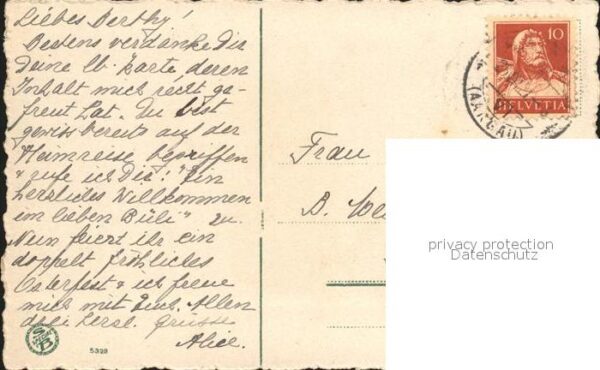 Liebes Berthy!
Bestens verdanke Dir
Deine lb. Karte deren
Inhalt mich recht ge-
freut hat. Du bist
gewiss bereits auf der
"Heimreise" begriffen
& rufe ich Dir: "Ein
herzliches Willkommen
im lieben Büli" zu.
Nun feiert ihr ein
doppelt fröhliches
Osterfest & ich freue
mich mit Euch. Allen
herzl. Grüsse
Alice.
10
HELVETIA
(AARGAU)
Frau
B. We
privacy protection
Datenschutz
5329